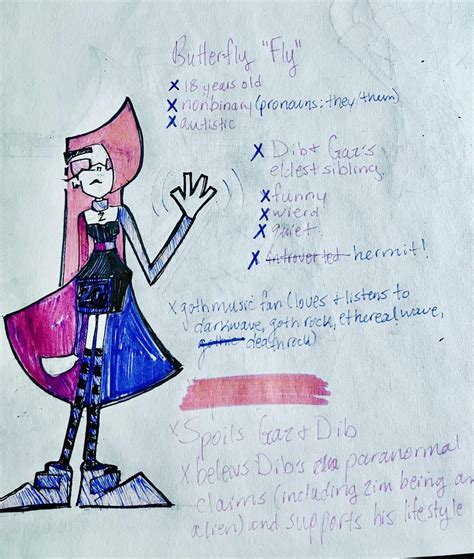 Butterfly "Fly"
x 18 years old
x nonbinary (pronouns: they/them)
x autistic
x Dib & Gaz's
eldest sibling
x funny
x wierd
x quiet
x introverted hermit!
x goth music fan (loves & listens to
darkwave, goth rock, ethereal wave,
gothic deathrock)
x Spoils Gaz & Dib
x belevs Dib's paranormal
claims (including zim being an
alien) and supports his lifestyle
Z